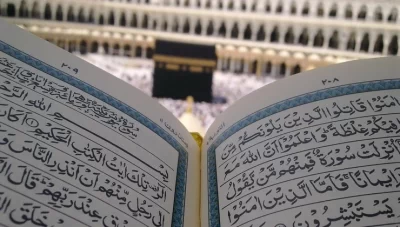 ٢٠٨
ءَامَنُوا۟ قَٰتِلُوا۟ ٱلَّذِينَ يَلُونَكُم مِّنَ
فِيكُمْ غِلْظَةً وَٱعْلَمُوٓا۟ أَنَّ ٱللَّهَ مَعَ
أُنزِلَتْ سُورَةٌ فَمِنْهُم مَّن يَقُولُ
إِيمَٰنًا فَأَمَّا ٱلَّذِينَ ءَامَنُوا۟
يَسْتَبْشِرُونَ
٢٠٩
بِسْمِ ٱللَّهِ ٱلرَّحْ
الٓر تِلْكَ ءَايَٰتُ ٱلْكِتَٰبِ ٱلْحَكِيمِ ١ أَكَانَ
إِلَىٰ رَجُلٍ مِّنْهُمْ أَنْ أَنذِرِ ٱلنَّاسَ وَ
صِدْقٍ عِندَ رَبِّهِمْ قَالَ ٱلْ
خَلَقَ